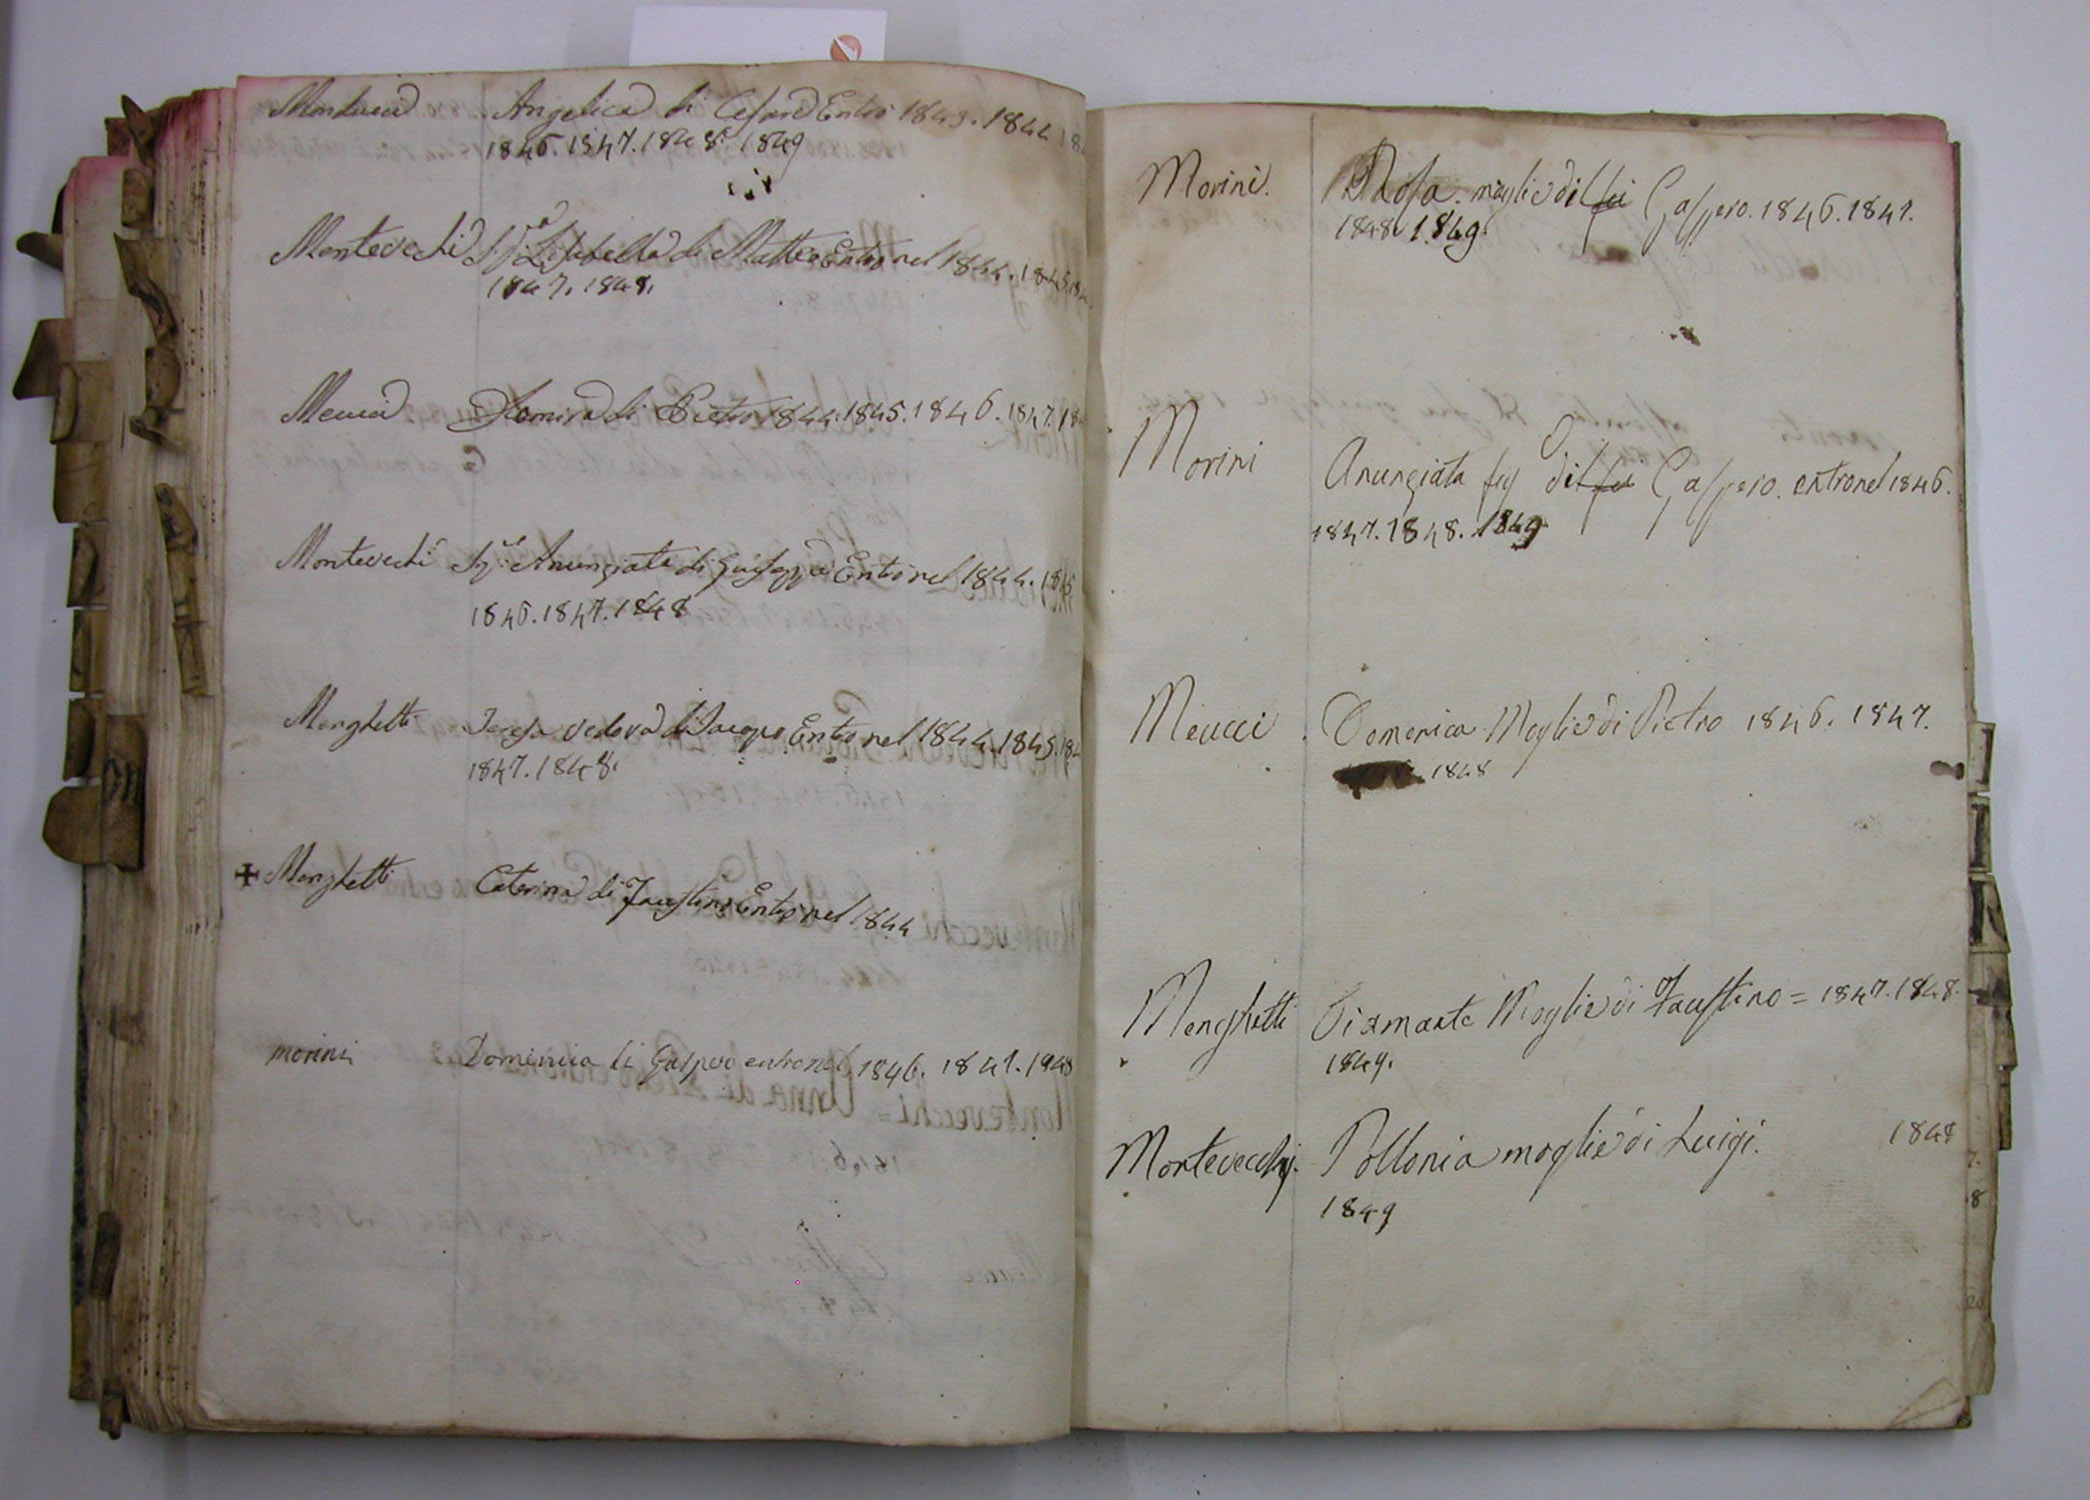 Angelica di Cesare Entrò 1843. 1844
1846. 1847. 1848. 1849
Montevechi Sig.a Lisabetta di Matteo Entrò nel 1844. 1845.
1847. 1848.
Meucci Domira di Pietro 1844. 1845. 1846. 1847.
Montevechi Anunziata di Guiseppe Entrò nel 1844. 1845
1846. 1847. 1848
Menghetti Teresa vedova di Jacopo Entrò nel 1844. 1845.
1847. 1848.
✠ Menghetti Caterina di Faustino Entrò nel 1844
morini Domenica di Gaspero entro nel 1846. 1847. 1948
Morini. Rosa. moglie di fu Gaspero. 1846. 1847.
1848. 1849.
Morini Anunziata fig di fu Gaspero. entro nel 1846.
1847. 1848. 1849
Meucci Domenica Moglie di Pietro 1846. 1847.
1848
Menghetti Diamante Moglie di Faustino = 1847. 1848.
1849.
Montevecchj. Pollonia moglie di Luigi. 1848
1849